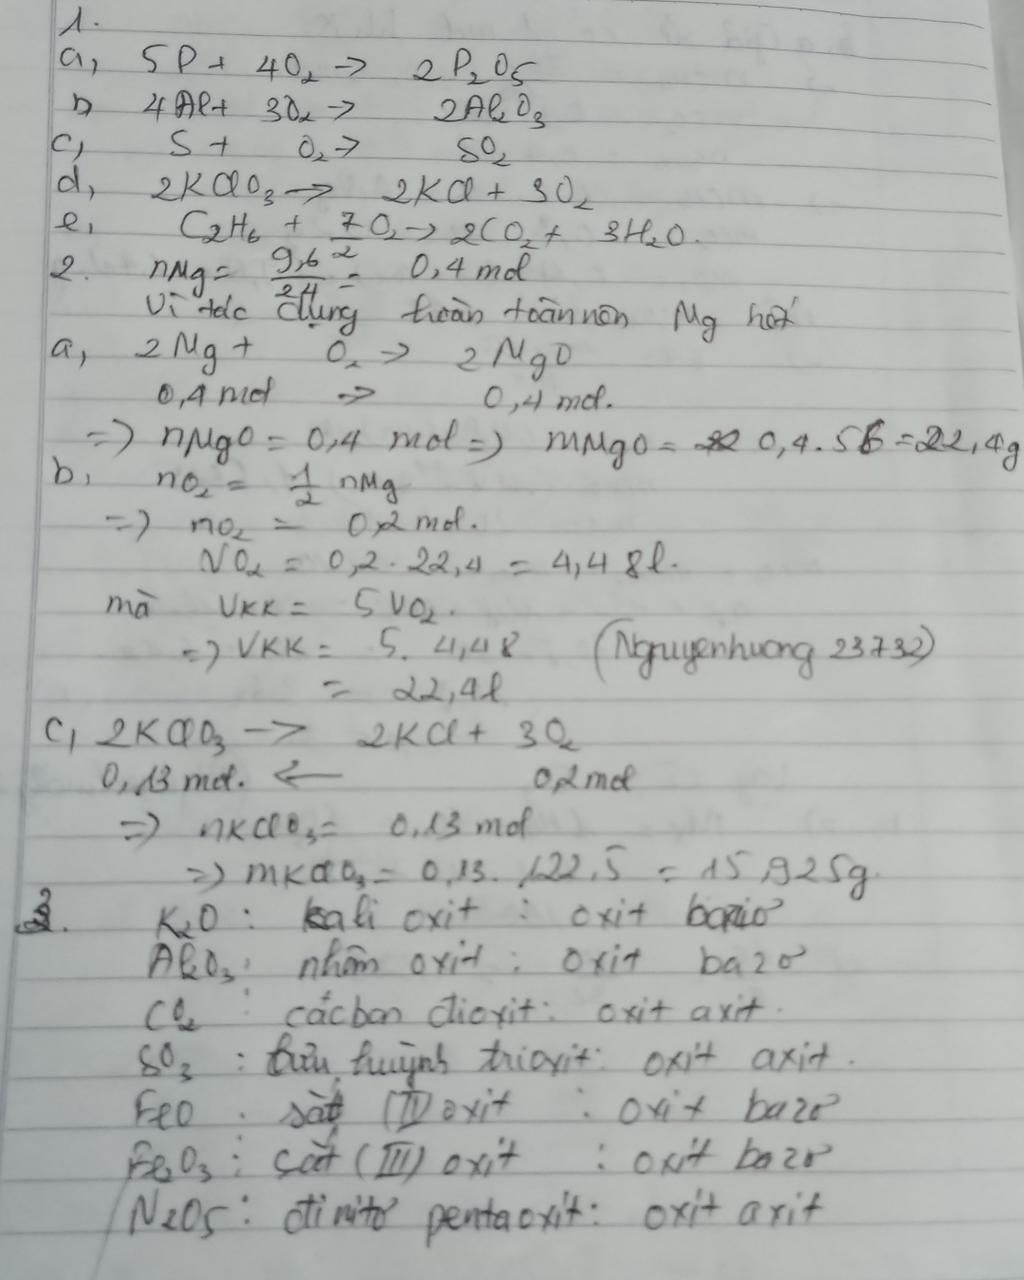 1.
a, 5P + 4O₂ → 2P₂O₅
b, 4Al + 3O₂ → 2Al₂O₃
c, S + O₂ → SO₂
d, 2KClO₃ → 2KCl + 3O₂
e, C₂H₆ + 7/2 O₂ → 2CO₂ + 3H₂O.
2. nMg = 9,6/24 = 0,4 mol
Vì tác dụng hoàn toàn nên Mg hết
a, 2Mg + O₂ → 2MgO
0,4 mol → 0,4 mol.
=> nMgO = 0,4 mol => mMgO = 0,4.56 = 22,4g
b, nO₂ = 1/2 nMg
=> nO₂ = 0,2 mol.
VO₂ = 0,2.22,4 = 4,48l.
mà VKK = 5VO₂.
=> VKK = 5. 4,48 (Nguyenhuong 23732)
= 22,4l
c, 2KClO₃ → 2KCl + 3O₂
0,13 mol. ← 0,2 mol
=> nKClO₃ = 0,13 mol
=> mKClO₃ = 0,13. 122,5 = 15,925g.
3. K₂O: kali oxit : oxit bazơ
Al₂O₃: nhôm oxit : oxit bazơ
CO₂ : cácbon đioxit: oxit axit.
SO₃ : lưu huỳnh trioxit: oxit axit.
FeO : sắt (II) oxit : oxit bazơ
Fe₂O₃ : sắt (III) oxit : oxit bazơ
N₂O₅: đinitơ pentaoxit: oxit axit